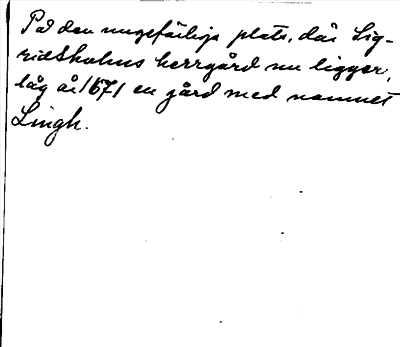 På den ungefärliga plats, där Sig-
ridsholms herrgård nu ligger,
låg år 1671 en gård med namnet
Lingh.